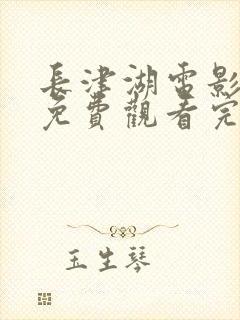 長津湖電影
免費觀看完
玉生琴